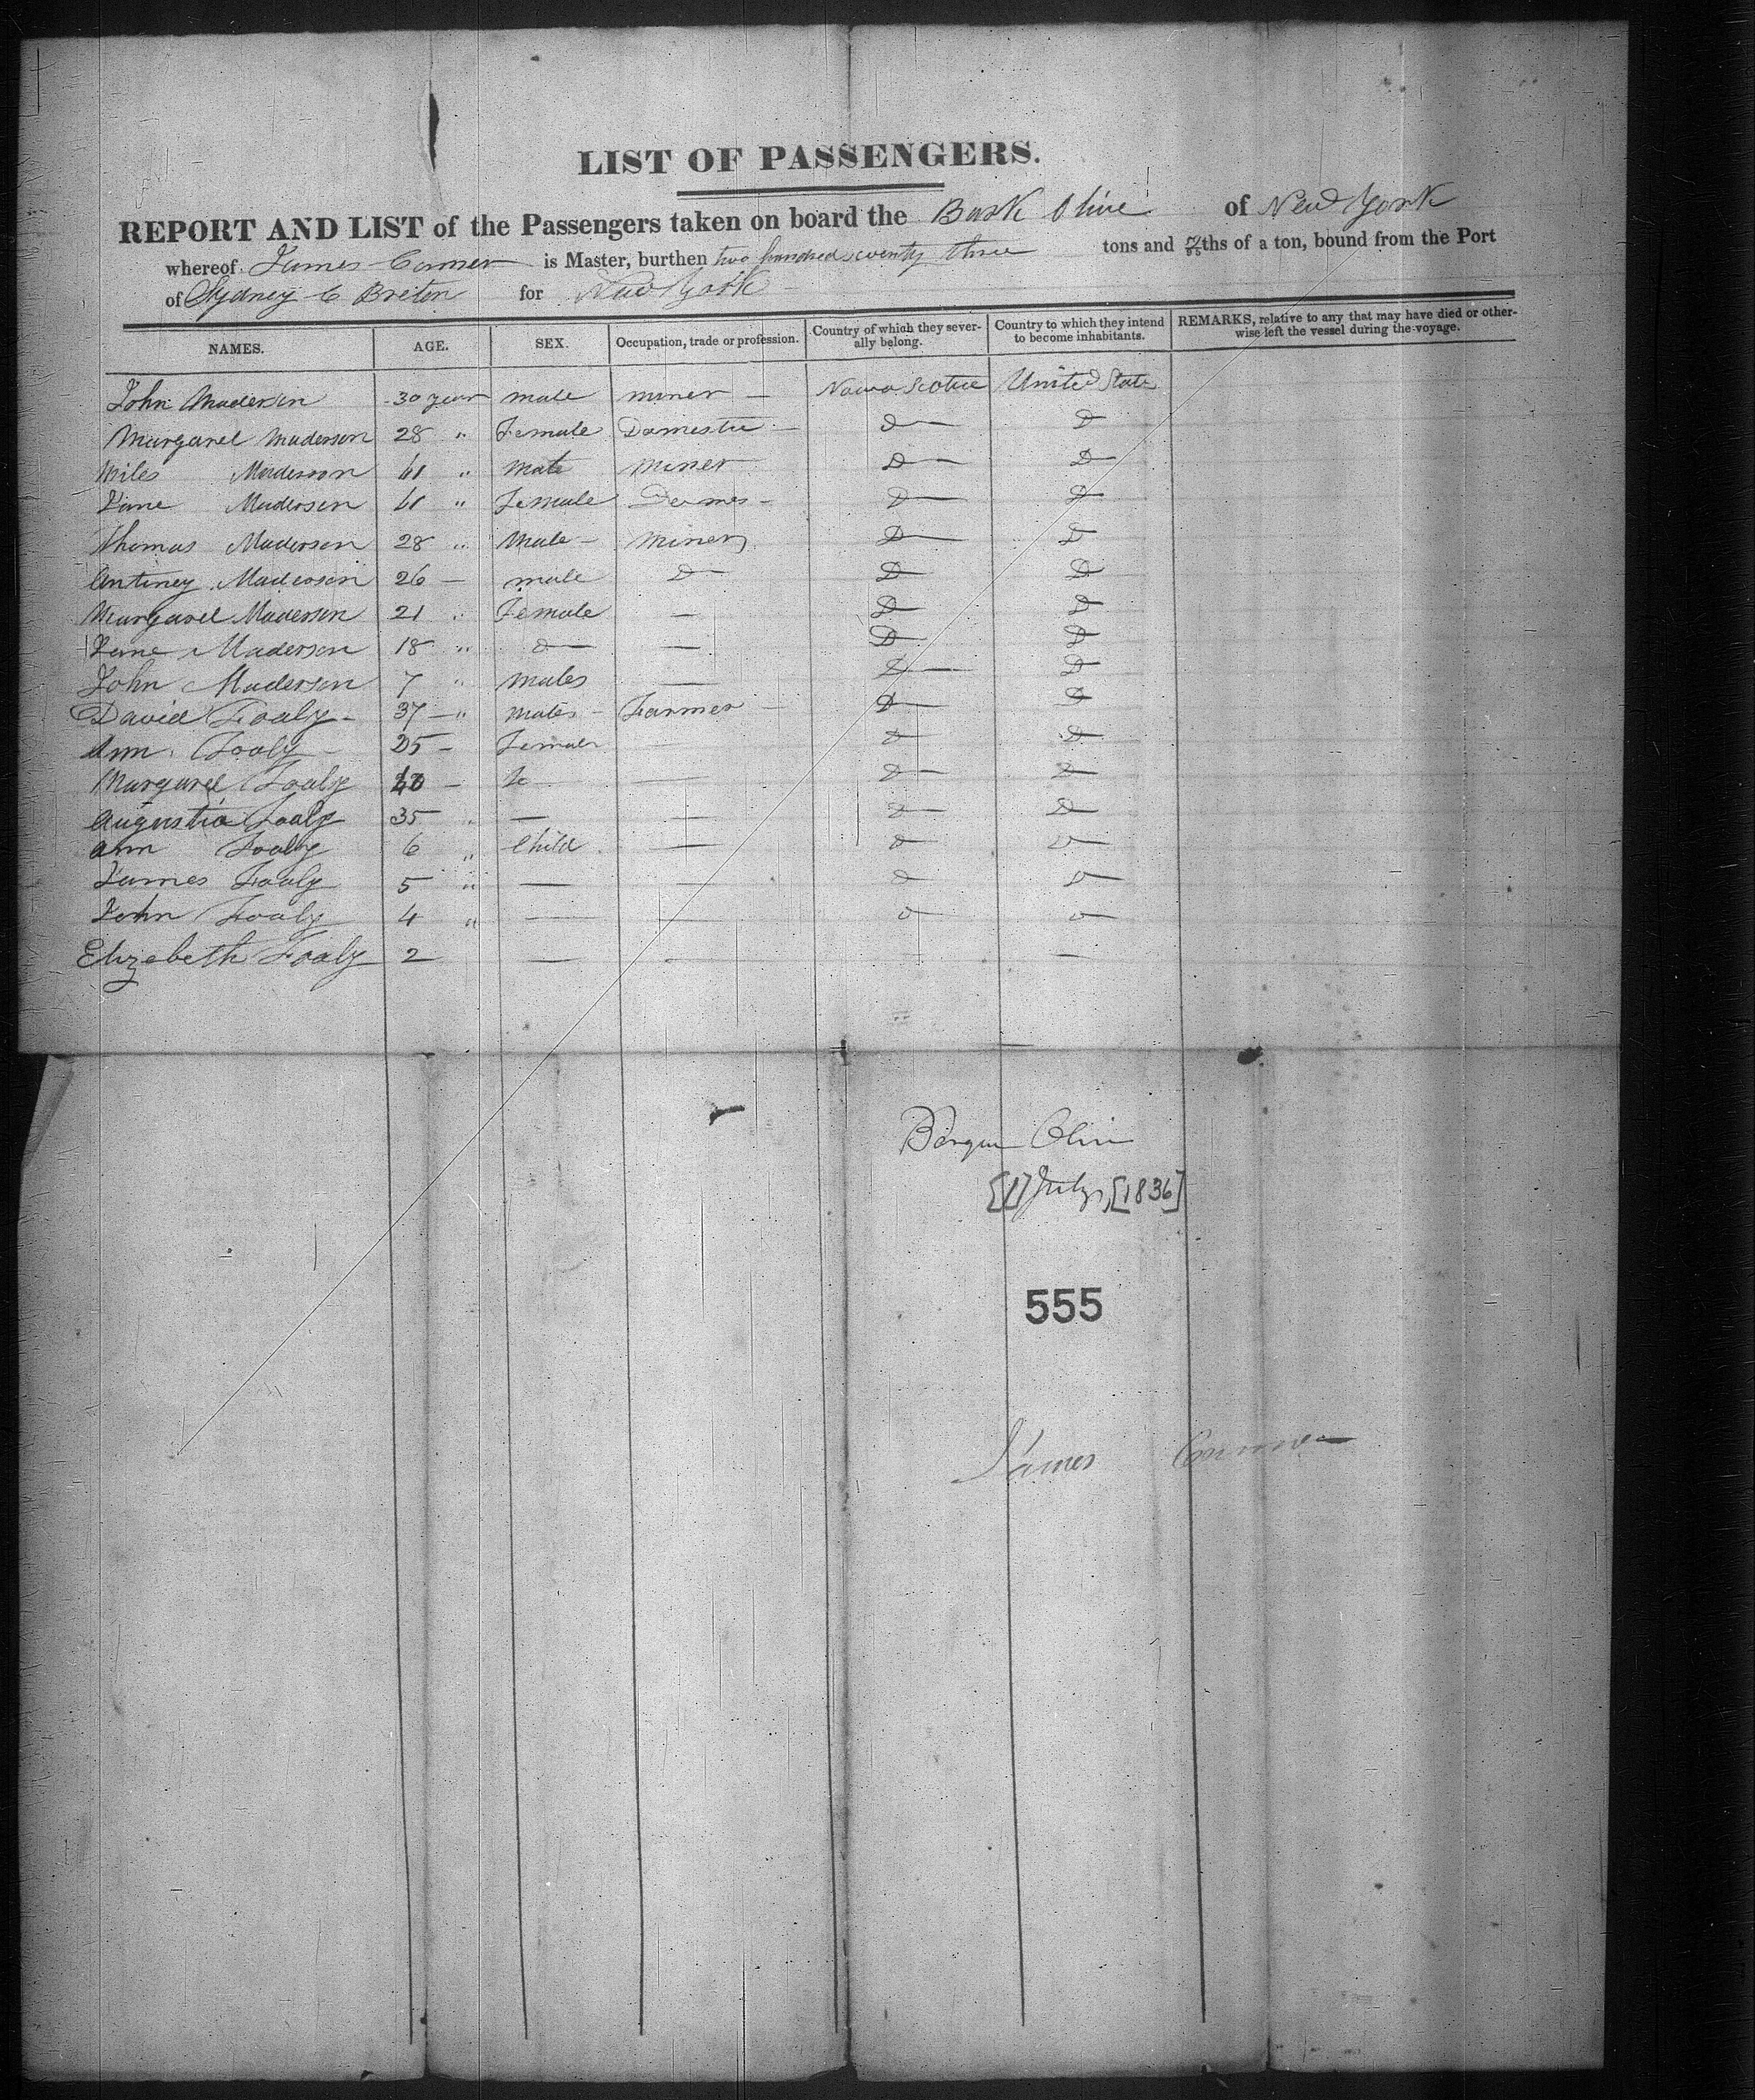 LIST OF PASSENGERS.
REPORT AND LIST of the Passengers taken on board the Bark Olive of New York
whereof James Conner is Master, burthen two hundred seventy three tons and ths of a ton, bound from the Port
of Sydney C Breton for New York
NAMES. AGE. SEX. Occupation, trade or profession. Country of which they severally belong. Country to which they intend to become inhabitants. REMARKS, relative to any that may have died or otherwise left the vessel during the voyage.
John Maderson 30 year male miner — Nova Scotia United State
Margaret Maderson 28 " Female Domestic — D— D
Miles Maderson 61 " Male Miner D— D—
Jane Maderson 61 " Female Domes - D— D
Thomas Maderson 28 " Male — Miner D— D
Antiney Maderson 26 — male D— D— D
Margaret Maderson 21 " Female — D— D
Jane Maderson 18 " D— — D— D
John Maderson 7 " Males — D— D
David Foaly - 37 — " Males — Farmer — D— D
Ann Foaly - 25 — Female — D— D
Margaret Foaly — — D— D
Augustia Foaly 35 " — — D— D
Ann Foaly 6 " Child — D— D—
James Foaly 5 " — — D— D—
John Foaly 4 " — — D— D—
Elizabeth Foaly 2 — — — —
Barque Olive
[1] July, [1836]
555
James Conner